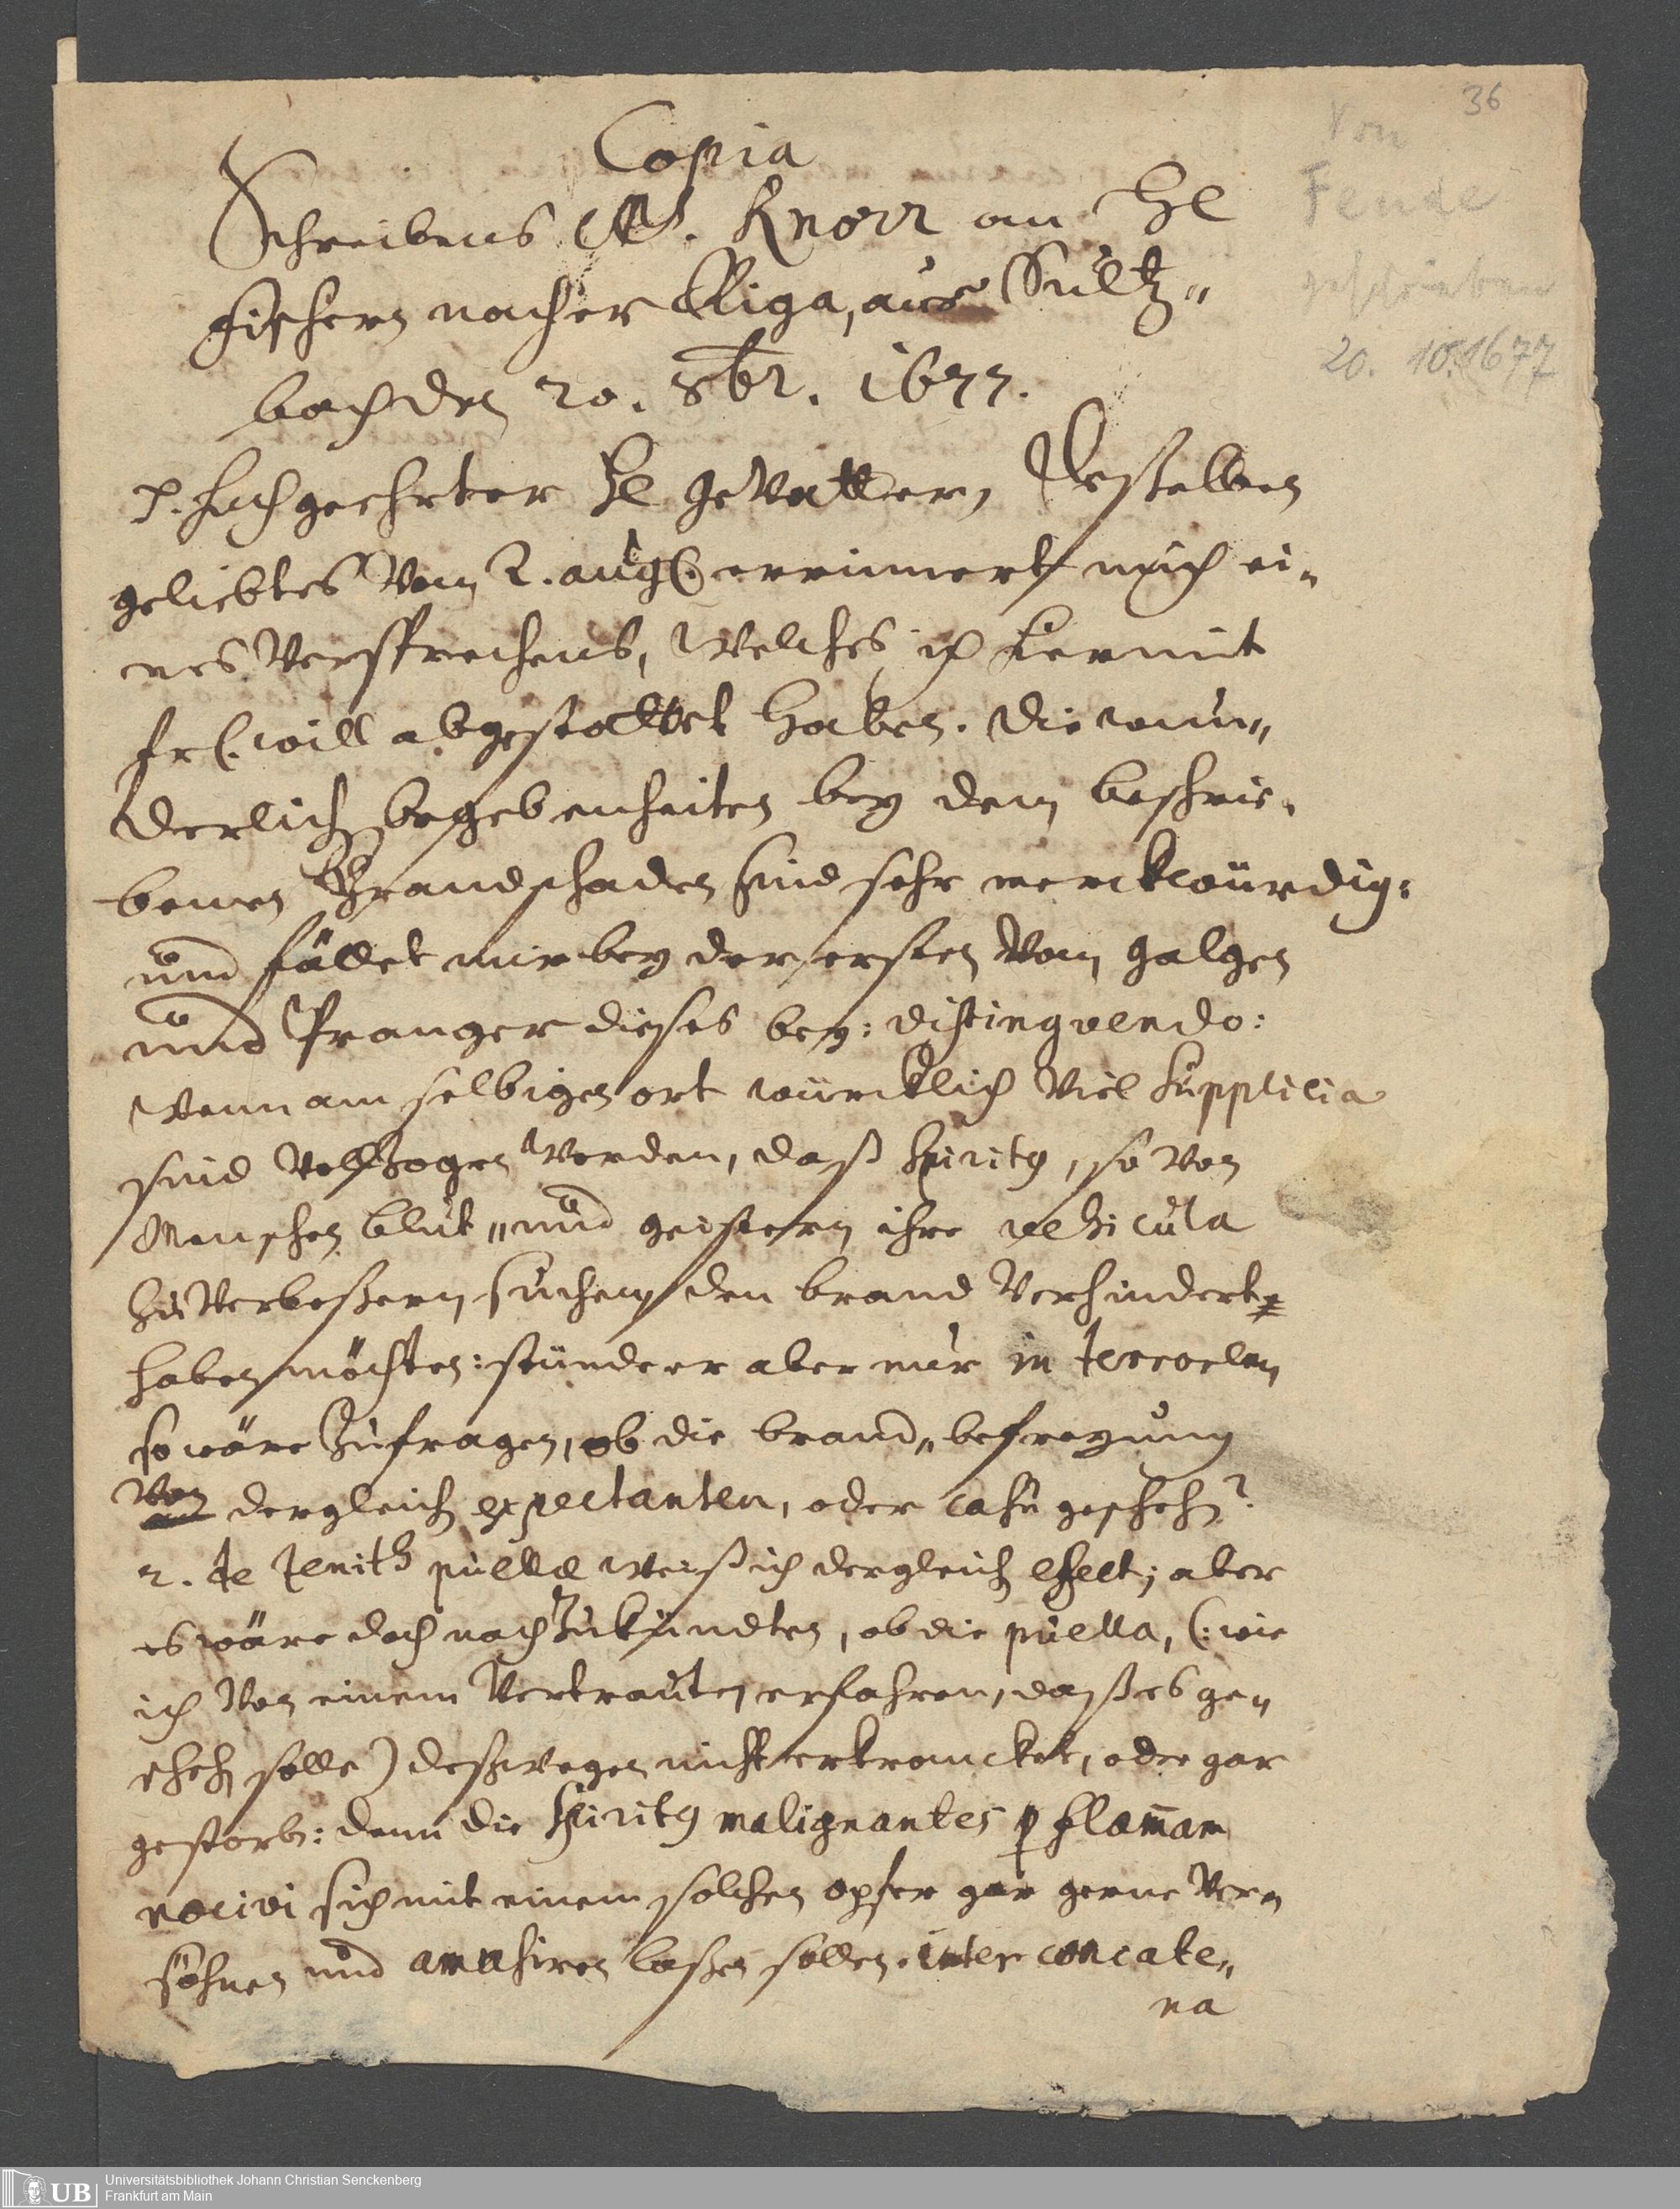 36
Von
Fende
geschrieben
20. 10. 1677
Copia
Schreibens M. Knorr an H
Fischern nacher Riga, aus Sultz„
bach den 20. 8br. 1677.
P. Hochgeehrter H Gevattern, Desselben
geliebtes vom 2. aug. errinnert mich ei„
nes Versprechens, welches ich hiermit
will abgestattet haben. Die wun„
derlich begebenheiten bey dem beschrie„
benen Brandschaden sind sehr merckwürdig:
und fället mir bey der ersten vom galgen
und Pranger dieses bey: distingvendo:
wenn am selbigen ort würcklich viel Supplicia
sind vollzogen worden, daß Spiritus, so von
Menschen blut„ und geistern ihre vehicula
zu verbeßern suchen, den brand verhindert
haben möchten: stünde er aber nur in terrorem
so wäre zufragen, ob die brand„befreyung
von dergleich expectanten, oder casu gescheh?
2. de Zenith puellæ weiß ich dergleich effect; aber
es wäre doch nach Zukündten, ob die puella, (: wie
ich von einem Vertrauten erfahren, daß es ge„
scheh solle) deßwegen nicht erkrancket, oder gar
gestorb: denn die Spiritus malignantes p flam̄am
nocivi sich mit einem solchen opfer gar gerne ver„
söhnen und amusiren laßen sollen. inter concate„
na
UB
Universitätsbibliothek Johann Christian Senckenberg
Frankfurt am Main